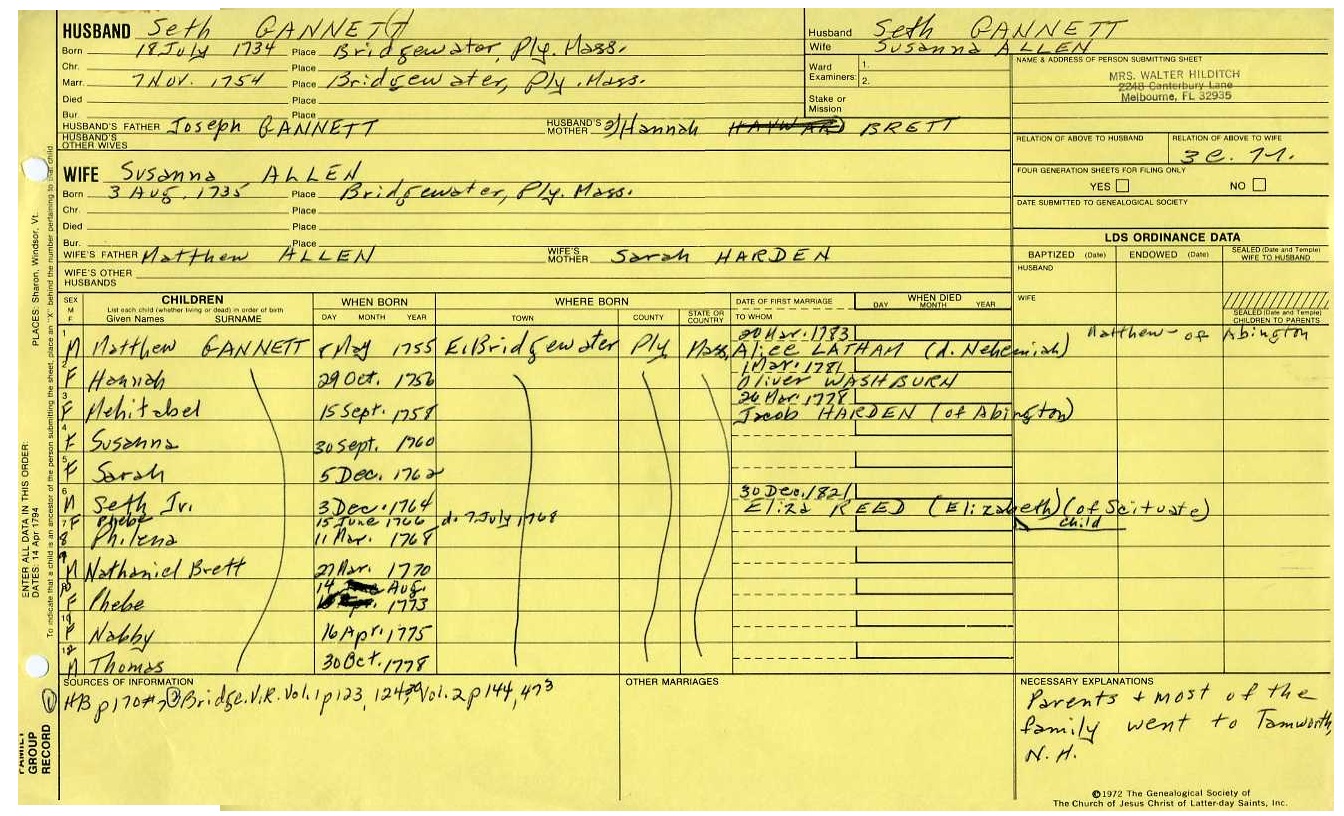 HUSBAND Seth GANNETT
Born 18 July 1734 Place Bridgewater, Ply. Mass.
Chr. Place
Marr. 7 Nov. 1754 Place Bridgewater, Ply. Mass.
Died Place
Bur. Place
HUSBAND'S FATHER Joseph GANNETT HUSBAND'S MOTHER 2) Hannah HAYWARD BRETT
HUSBAND'S OTHER WIVES
Husband Seth GANNETT
Wife Susanna ALLEN
Ward 1.
Examiners: 2.
Stake or Mission
NAME & ADDRESS OF PERSON SUBMITTING SHEET
MRS. WALTER HILDITCH
2248 Canterbury Lane
Melbourne, FL 32935
RELATION OF ABOVE TO HUSBAND RELATION OF ABOVE TO WIFE
FOUR GENERATION SHEETS FOR FILING ONLY
YES NO
DATE SUBMITTED TO GENEALOGICAL SOCIETY
WIFE Susanna ALLEN
Born 3 Aug. 1735 Place Bridgewater, Ply. Mass.
Chr. Place
Died Place
Bur. Place
WIFE'S FATHER Matthew ALLEN WIFE'S MOTHER Sarah HARDEN
WIFE'S OTHER HUSBANDS
LDS ORDINANCE DATA
BAPTIZED (Date) ENDOWED (Date) SEALED (Date and Temple) WIFE TO HUSBAND
HUSBAND
WIFE
SEALED (Date and Temple) CHILDREN TO PARENTS
SEX M F CHILDREN WHEN BORN WHERE BORN DATE OF FIRST MARRIAGE WHEN DIED
List each child (whether living or dead) in order of birth
Given Names SURNAME DAY MONTH YEAR TOWN COUNTY STATE OR COUNTRY TO WHOM DAY MONTH YEAR
20 Mar. 1783 Matthew - of Abington
1 M Matthew GANNETT May 1755 E. Bridgewater Ply Mass. Alice LATHAM (d. Nehemiah)
1 Mar. 1781
2 F Hannah 29 Oct. 1756 Oliver WASHBURN
26 Mar. 1778
3 F Mehitabel 15 Sept. 1758 Jacob HARDEN (of Abington)
4 F Susanna 30 Sept. 1760
5 F Sarah 5 Dec. 1762
30 Dec. 1821
6 M Seth Jr. 3 Dec. 1764 Eliza REED (Elizabeth) (of Scituate)
7 F Phebe 15 June 1766 d. 7 July 1768 child
8 Philena 11 Mar. 1768
9 M Nathaniel Brett 27 Mar. 1770
14 Aug.
10 F Phebe 1773
F Nabby 16 Apr. 1775
12 M Thomas 30 Oct. 1778
SOURCES OF INFORMATION
HB p170#7 Bridge. V.R. Vol. 1 p123, 124, Vol. 2 p144, 473
OTHER MARRIAGES
NECESSARY EXPLANATIONS
Parents + most of the
family went to Tamworth,
N.H.
©1972 The Genealogical Society of
The Church of Jesus Christ of Latter-day Saints, Inc.
FAMILY GROUP RECORD
ENTER ALL DATA IN THIS ORDER:
DATES: 14 Apr 1794
PLACES: Sharon, Windsor, Vt.
To indicate that a child is an ancestor of the person submitting the sheet, place an "X" behind the number pertaining to that child.